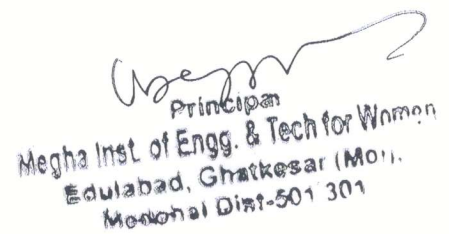 Principal
Megha Inst. of Engg. & Tech for Women
Edulabad, Ghatkesar (Mo),
Medchal Dist-501 301